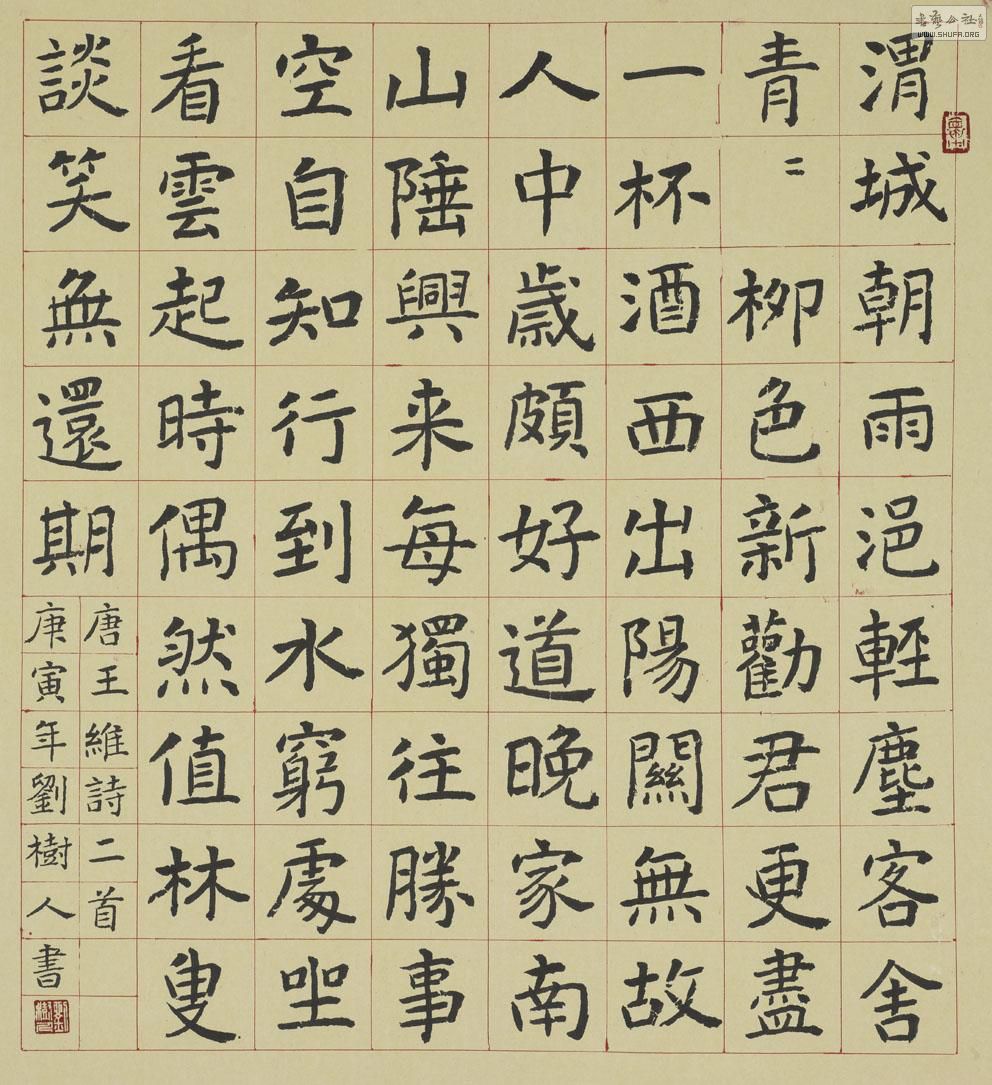 渭城朝雨浥輕塵客舍
青〻柳色新勸君更盡
一杯酒西出陽關無故
人中歲頗好道晚家南
山陲興来每獨往勝事
空自知行到水窮處坐
看雲起時偶然值林叟
談笑無還期
唐王維詩二首
庚寅年劉樹人書
書藝公社
WWW.SHUFA.ORG